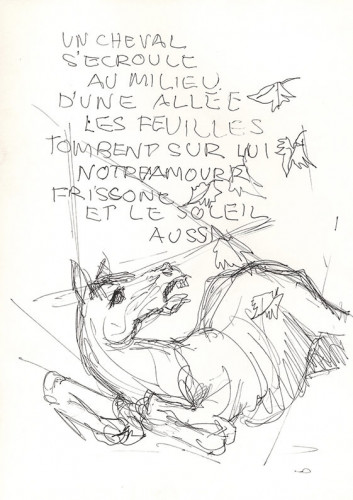 UN CHEVAL
S'ECROULE
AU MILIEU
D'UNE ALLÉE
LES FEUILLES
TOMBENT SUR LUI
NOTRE AMOUR
FRISSONE
ET LE SOLEIL
AUSSI